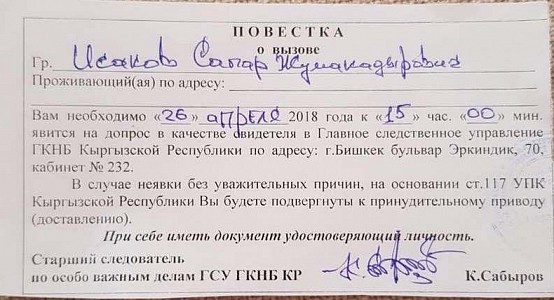 ПОВЕСТКА
о вызове
Гр. Исаков Сапар Жумакадырович
Проживающий(ая) по адресу:
Вам необходимо «26» апреля 2018 года к «15» час. «00» мин.
явится на допрос в качестве свидетеля в Главное следственное управление
ГКНБ Кыргызской Республики по адресу: г.Бишкек бульвар Эркиндик, 70,
кабинет № 232.
В случае неявки без уважительных причин, на основании ст.117 УПК
Кыргызской Республики Вы будете подвергнуты к принудительному приводу
(доставлению).
При себе иметь документ удостоверяющий личность.
Старший следователь
по особо важным делам ГСУ ГКНБ КР К.Сабыров